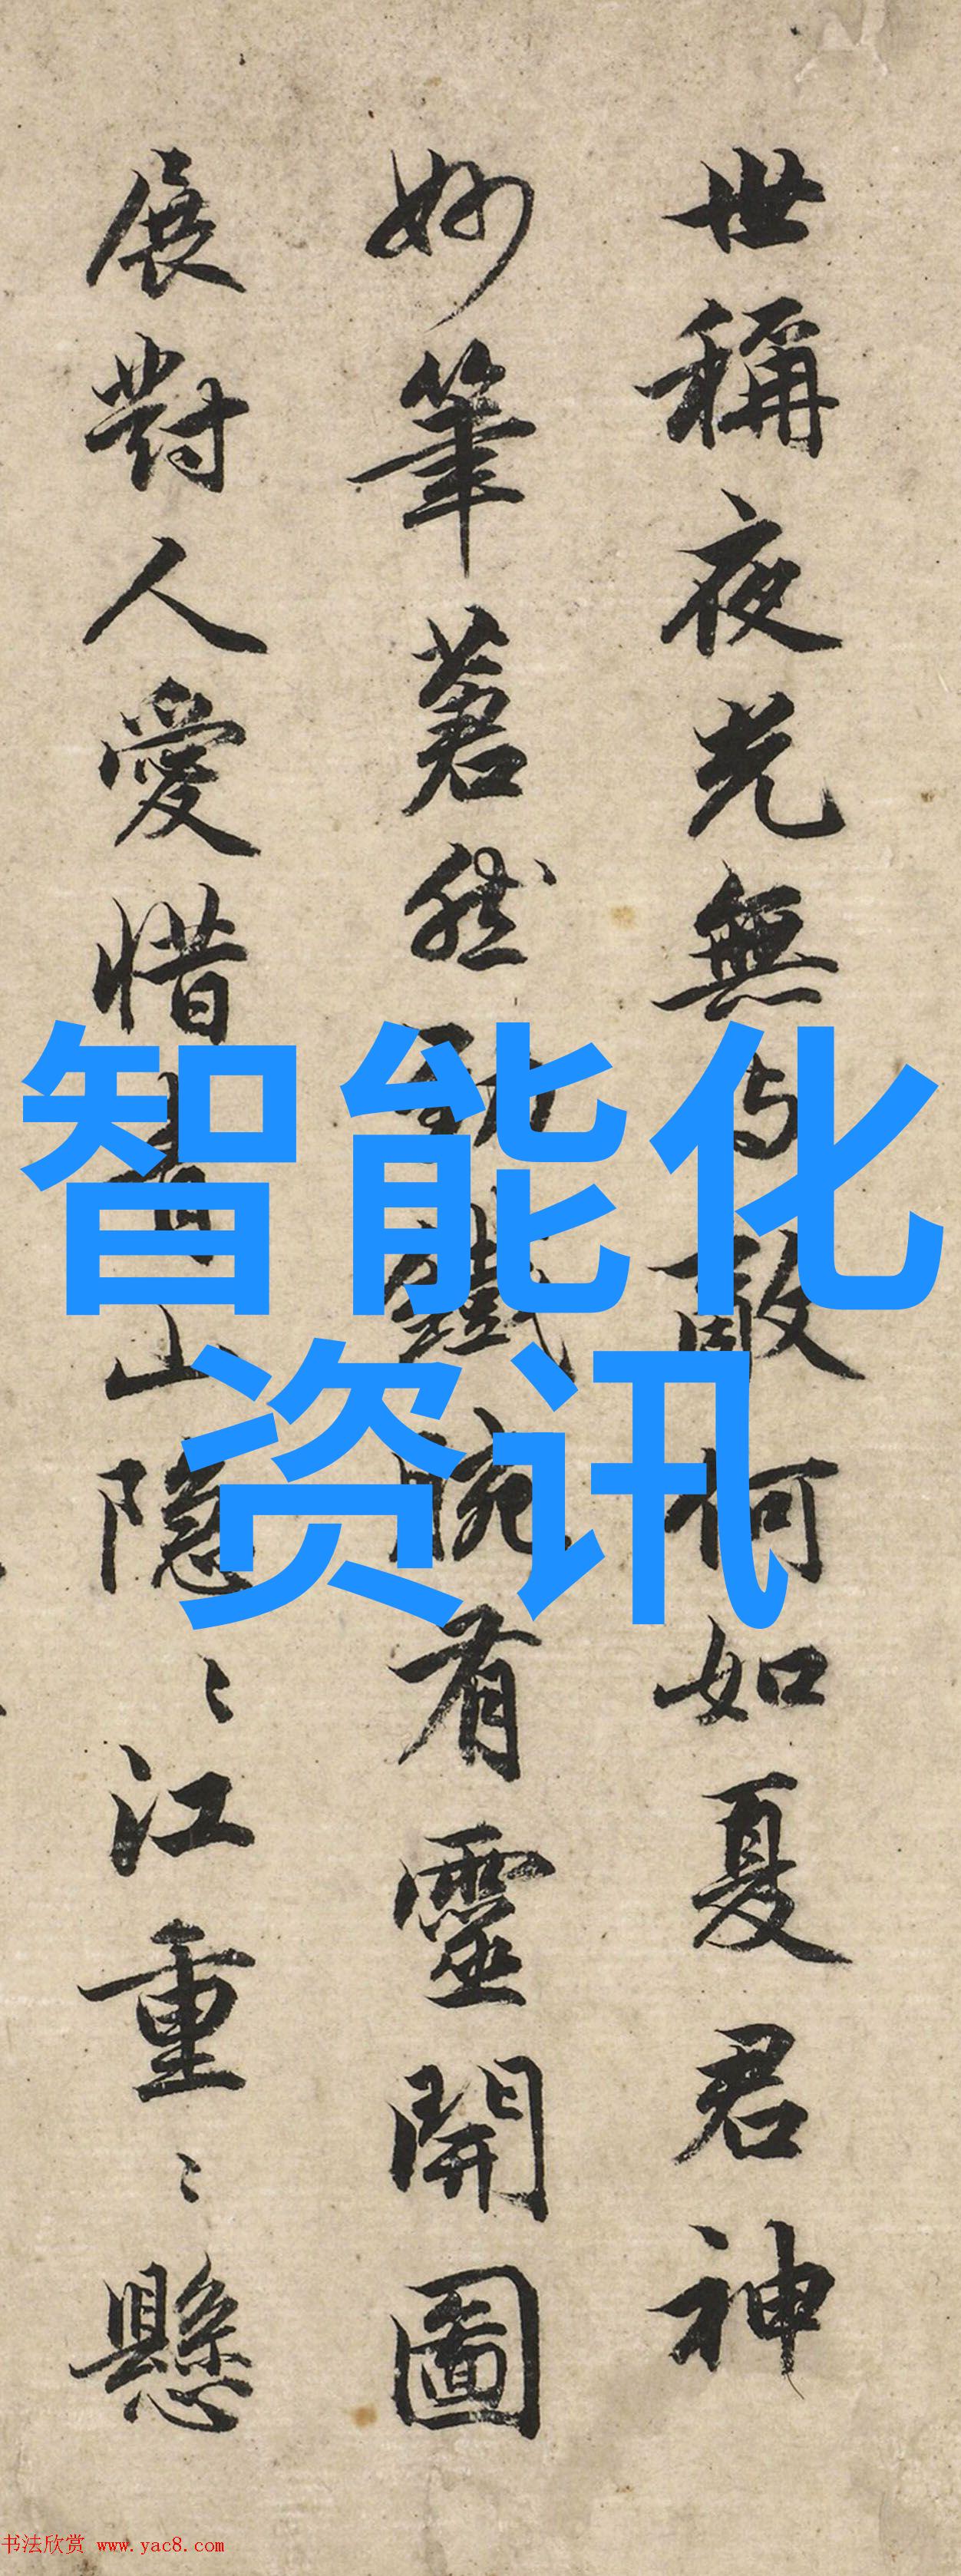 世稱夜光無与敵何如夏君神
妙筆蒼然鐵腕有靈開圖
展對人愛惜青山隱〻江重〻懸
智能化
资讯
书法欣赏 www.yac8.com